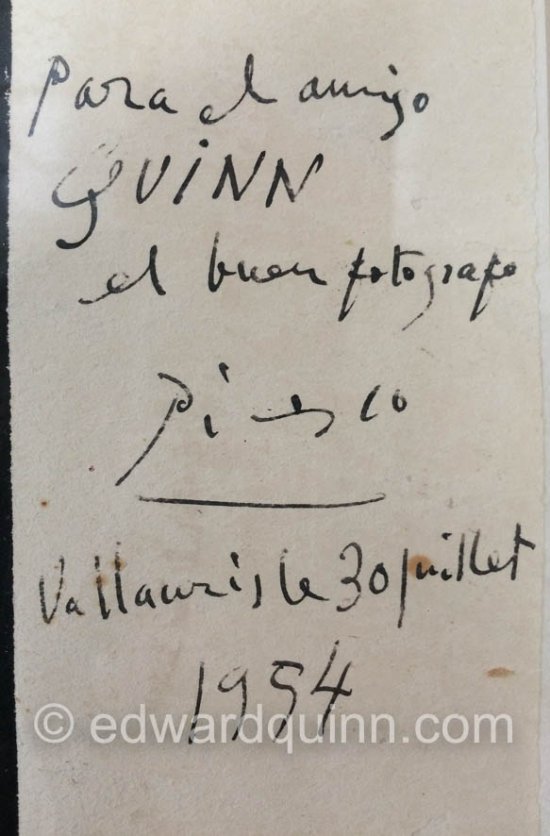 para el amigo
QUiNN
el buen fotografo
Picasso
Vallauris le 30 juillet
1954
© edwardquinn.com